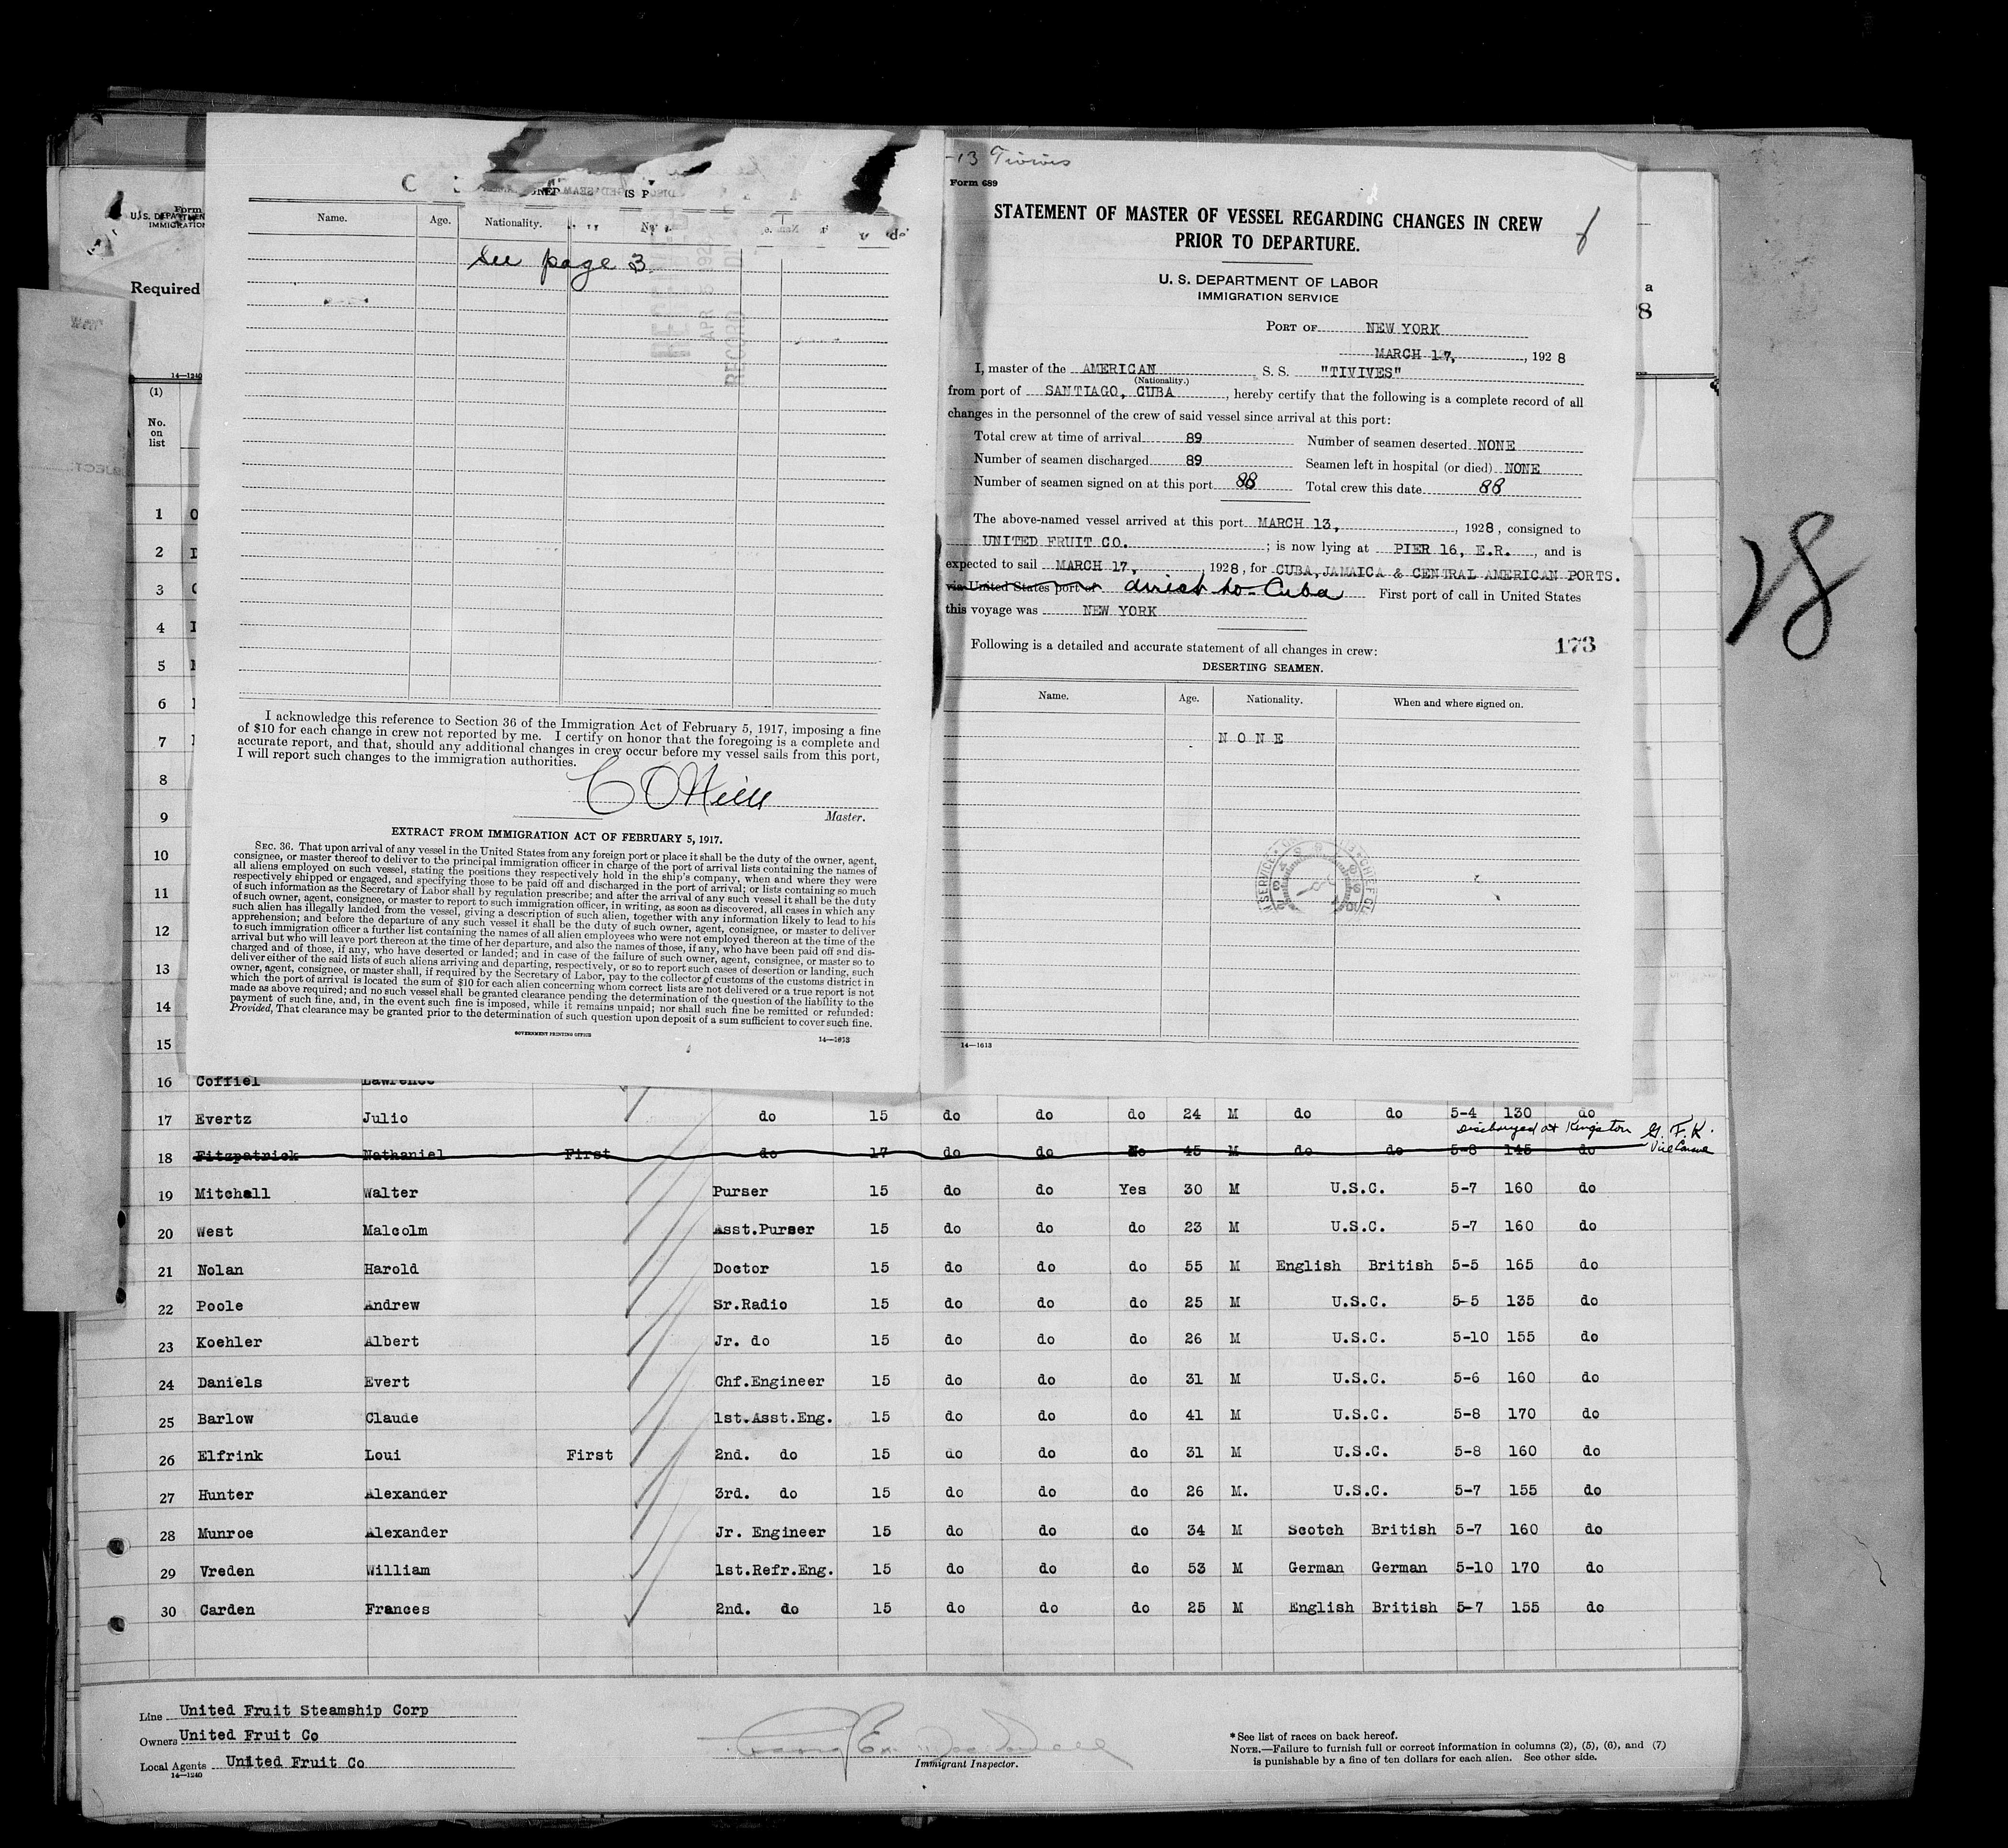 -13 Tivives
Form 689
STATEMENT OF MASTER OF VESSEL REGARDING CHANGES IN CREW
PRIOR TO DEPARTURE.
U. S. DEPARTMENT OF LABOR
IMMIGRATION SERVICE
PORT OF NEW YORK
MARCH 17, 1928
I, master of the AMERICAN S. S. "TIVIVES"
(Nationality.)
from port of SANTIAGO, CUBA, hereby certify that the following is a complete record of all
changes in the personnel of the crew of said vessel since arrival at this port:
Total crew at time of arrival 89 Number of seamen deserted NONE
Number of seamen discharged 89 Seamen left in hospital (or died) NONE
Number of seamen signed on at this port 88 Total crew this date 88
The above-named vessel arrived at this port MARCH 13, 1928, consigned to
UNITED FRUIT CO. ; is now lying at PIER 16, E.R., and is
expected to sail MARCH 17, 1928, for CUBA, JAMAICA & CENTRAL AMERICAN PORTS.
via United States port of direct to Cuba First port of call in United States
this voyage was NEW YORK
Following is a detailed and accurate statement of all changes in crew:
173
DESERTING SEAMEN.
Name. Age. Nationality. When and where signed on.
NONE
14—1613
28
Name. Age. Nationality.
See page 3
I acknowledge this reference to Section 36 of the Immigration Act of February 5, 1917, imposing a fine
of $10 for each change in crew not reported by me. I certify on honor that the foregoing is a complete and
accurate report, and that, should any additional changes in crew occur before my vessel sails from this port,
I will report such changes to the immigration authorities.
Master.
EXTRACT FROM IMMIGRATION ACT OF FEBRUARY 5, 1917.
SEC. 36. That upon arrival of any vessel in the United States from any foreign port or place it shall be the duty of the owner, agent,
consignee, or master thereof to deliver to the principal immigration officer in charge of the port of arrival lists containing the names of
all aliens employed on such vessel, stating the positions they respectively hold in the ship's company, when and where they were
respectively shipped or engaged, and specifying those to be paid off and discharged in the port of arrival; or lists containing so much
of such information as the Secretary of Labor shall by regulation prescribe; and after the arrival of any such vessel it shall be the duty
of such owner, agent, consignee, or master to report to such immigration officer, in writing, as soon as discovered, all cases in which any
such alien has illegally landed from the vessel, giving a description of such alien, together with any information likely to lead to his
apprehension; and before the departure of any such vessel it shall be the duty of such owner, agent, consignee, or master to deliver
to such immigration officer a further list containing the names of all alien employees who were not employed thereon at the time of the
arrival but who will leave port thereon at the time of her departure, and also the names of those, if any, who have been paid off and dis-
charged and of those, if any, who have deserted or landed; and in case of the failure of such owner, agent, consignee, or master so to
deliver either of the said lists of such aliens arriving and departing, respectively, or so to report such cases of desertion or landing, such
owner, agent, consignee, or master shall, if required by the Secretary of Labor, pay to the collector of customs of the customs district in
which the port of arrival is located the sum of $10 for each alien concerning whom correct lists are not delivered or a true report is not
made as above required; and no such vessel shall be granted clearance pending the determination of the question of the liability to the
payment of such fine, and, in the event such fine is imposed, while it remains unpaid; nor shall such fine be remitted or refunded:
Provided, That clearance may be granted prior to the determination of such question upon deposit of a sum sufficient to cover such fine.
GOVERNMENT PRINTING OFFICE
14—1613
Form
U. S. DEPARTMEN
IMMIGRATION
Required
14—1240
(1)
No.
on
list
1
2
3
4
5
6
7
8
9
10
11
12
13
14
15
16 Coffiel Lawrence
17 Evertz Julio do 15 do do do 24 M do do 5-4 130 do
Discharged at Kingston G. F. K.
18 Fitzpatrick Nathaniel First do 17 do do No 45 M do do 5-8 145 do
19 Mitchell Walter Purser 15 do do Yes 30 M U.S.C. 5-7 160 do
20 West Malcolm Asst.Purser 15 do do do 23 M U.S.C. 5-7 160 do
21 Nolan Harold Doctor 15 do do do 55 M English British 5-5 165 do
22 Poole Andrew Sr.Radio 15 do do do 25 M U.S.C. 5-5 135 do
23 Koehler Albert Jr. do 15 do do do 26 M U.S.C. 5-10 155 do
24 Daniels Evert Chf.Engineer 15 do do do 31 M U.S.C. 5-6 160 do
25 Barlow Claude 1st.Asst.Eng. 15 do do do 41 M U.S.C. 5-8 170 do
26 Elfrink Loui First 2nd. do 15 do do do 31 M U.S.C. 5-8 160 do
27 Hunter Alexander 3rd. do 15 do do do 26 M. U.S.C. 5-7 155 do
28 Munroe Alexander Jr. Engineer 15 do do do 34 M Scotch British 5-7 160 do
29 Vreden William 1st.Refr.Eng. 15 do do do 53 M German German 5-10 170 do
30 Carden Frances 2nd. do 15 do do do 25 M English British 5-7 155 do
Line United Fruit Steamship Corp
Owners United Fruit Co
Local Agents United Fruit Co
14—1240
Immigrant Inspector.
*See list of races on back hereof.
NOTE.—Failure to furnish full or correct information in columns (2), (5), (6), and (7)
is punishable by a fine of ten dollars for each alien. See other side.